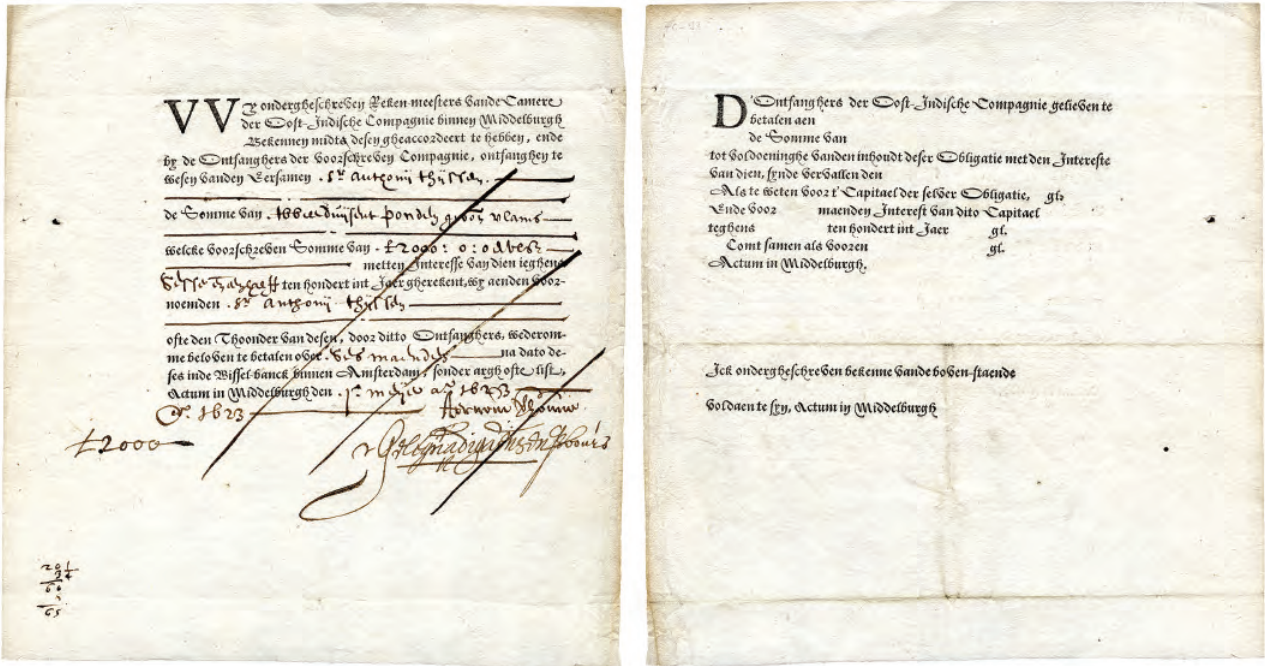 VVY ondergheschreven Reken-meesters vande Camere
der Oost-Indische Compagnie binnen Middelburgh
Bekennen midts desen gheaccordeert te hebben, ende
by de Ontfanghers der voorschreven Compagnie, ontfanghen te
wesen vanden Eersamen. Sr. Anthonij thijssen.
de Somme van. twee duijsent ponden groot vlams
welcke voorschreven Somme van. £2000:0:0
metten Interesse van dien ieghens
ten hondert int Jaer gherekent, wy aenden voor-
noemden. Sr. Anthonij thijssen
ofte den Thoonder van desen, door ditto Ontfanghers, wederom-
me beloven te betalen over. Ses maenden na dato de-
ses inde Wissel-banck binnen Amsterdam, sonder argh ofte list,
Actum in Middelburgh den. meije 1623
1623
£2000
D'Ontfanghers der Oost-Indische Compagnie gelieven te
betalen aen
de Somme van
tot voldoeninghe vanden inhoudt deser Obligatie met den Intereste
van dien, synde vervallen den
Als te weten voor t'Capitael der selver Obligatie, gl.
Ende voor maenden Interest van dito Capitael
teghens ten hondert int Jaer gl.
Comt samen als vooren gl.
Actum in Middelburgh.
Ick ondergheschreven bekenne vande boven-staende
voldaen te syn, Actum in Middelburgh